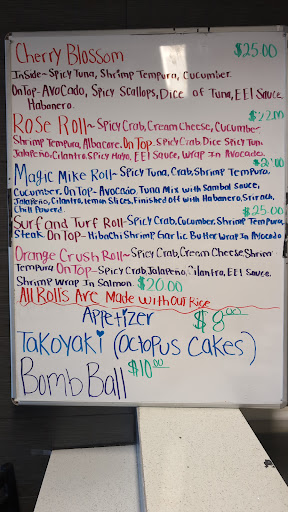 Cherry Blossom $25.00
Inside~ Spicy Tuna, Shrimp Tempura, Cucumber.
On Top- Avocado, Spicy Scallops, Dice of Tuna, EEl Sauce,
Habanero.
$22.00
Rose Roll~ Spicy Crab, Cream Cheese, Cucumber
Shrimp Tempura, Albacore. On Top- Spicy Crab Dice Spicy Tuna
Jalapeño, Cilantro, Spicy Mayo, EEl Sauce, Wrap In Avocado.
Magic Mike Roll- Spicy Tuna, Crab, Shrimp Tempura.
Cucumber. On Top- Avocado, Tuna Mix with Sambal Sauce,
Jalapeño, Cilantro, Lemon Slices, Finished off with Habanero, Srirach,
Chili Powder. $25.00
Surf and Turf Roll- Spicy Crab, Cucumber, Shrimp Tempura,
Steak. On Top- Hibachi Shrimp Garlic Butter Wrap In Avocado
Orange Crush Roll~ Spicy Crab, Cream Cheese, Shrimp
Tempura On Top- Spicy Crab, Jalapeño, Cilantro, EEl Sauce.
Shrimp Wrap In Salmon. $20.00
All Rolls Are Made without Rice
Appetizer $8.00
Takoyaki (Octopus Cakes)
Bomb Ball $10.00